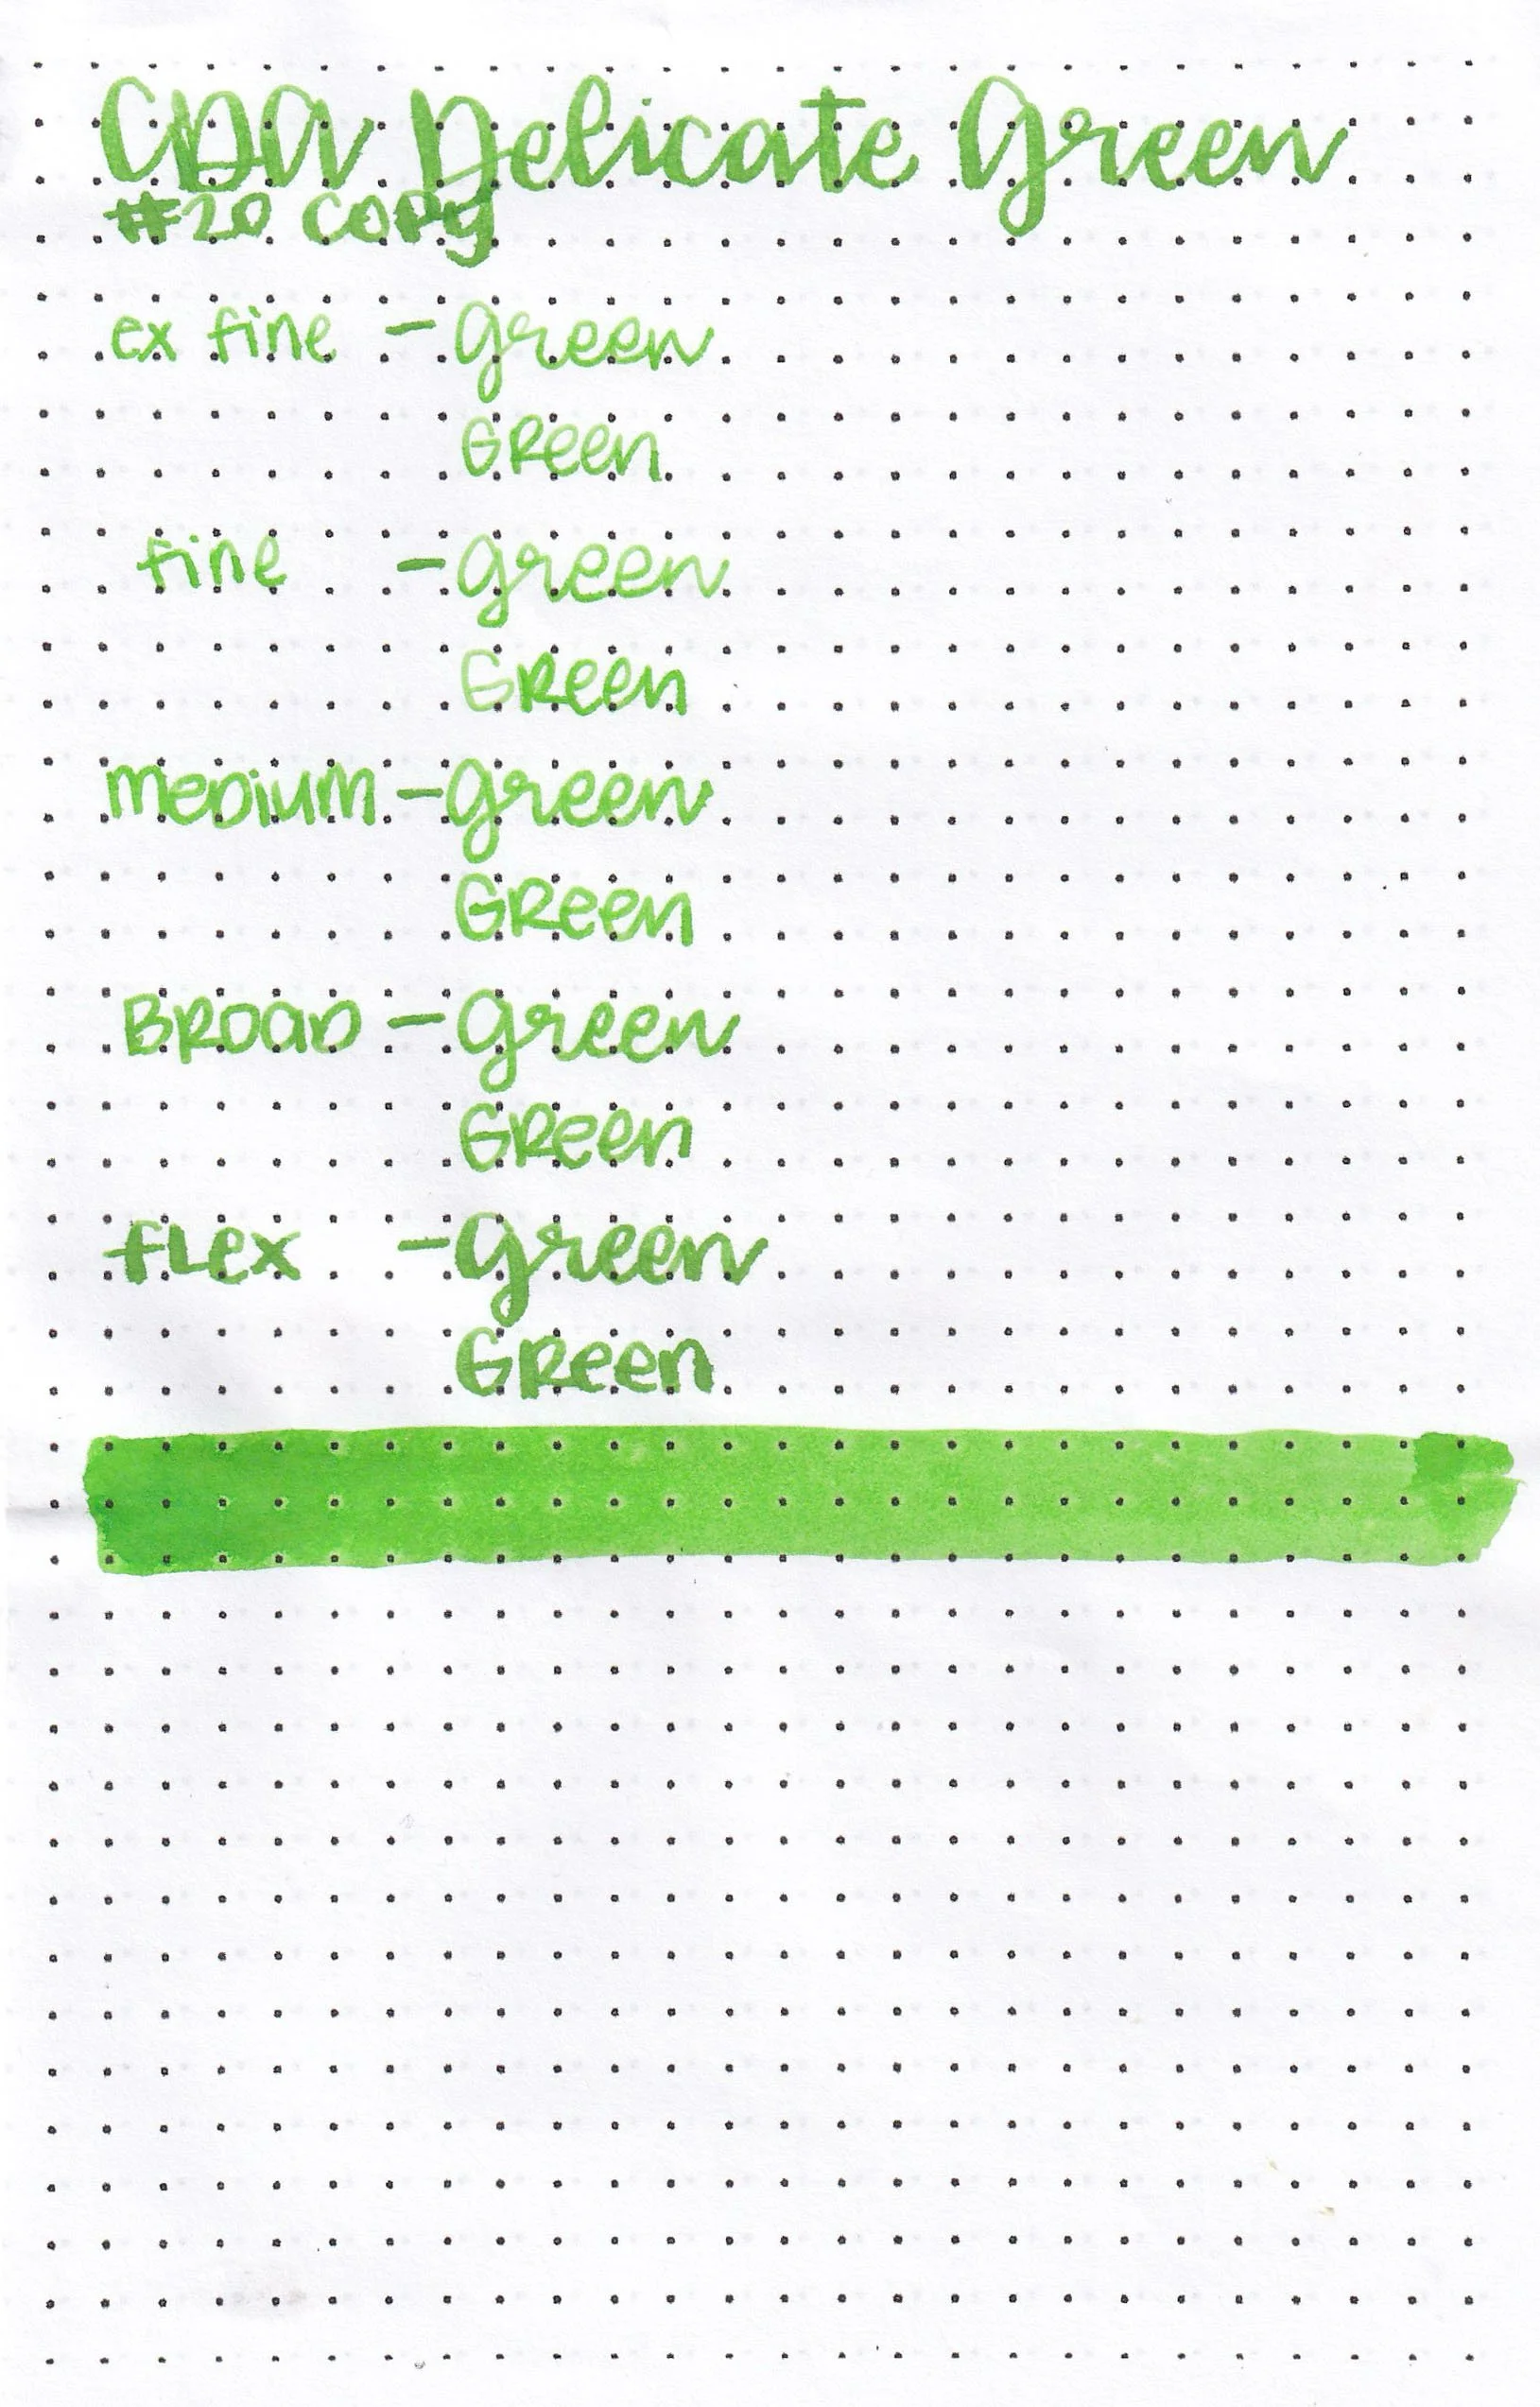 CDA Delicate Green
#20 copy
ex fine - green
Green
fine - green
Green
medium - green
Green
Broad - green
Green
flex - green
Green